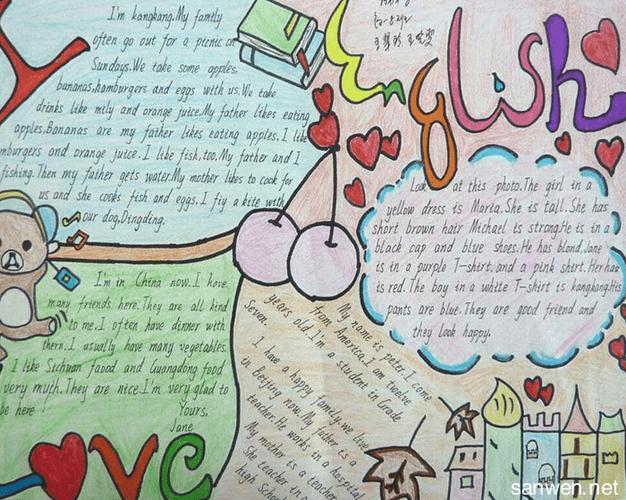 English
I'm kangkang.My family
often go out for a picnic on
Sundays.We take some apples,
bananas,hamburgers and eggs with us.We take
drinks like mily and orange juice.My father likes eating
apples.Bananas are my father likes eating apples.I like
mburgers and orange juice.I like fish,too.My father and I
fishing.Then my father gets water.My mother likes to cook for
us and she cooks fish and eggs.I fiy a kite with
our dog,Dingding.
Look at this photo.The girl in a
yellow dress is Maria.She is tall.She has
short brown hair Michael is strong.He is in a
black cap and blue shoes.He has blond.Jane
is in a purple T-shirt,and a pink shirt.Her hair
is red.The boy in a white T-shirt is kangkang.His
pants are blue.They are good friend and
they look happy.
I'm in China now.I have
many friends here.They are all kind
to me.I often have dinner with
them.I usually have many vegetables.
I like Sichvan faood and Guangdong food
very myth.They are nice.I'm very glad to
be here
Yours,
Jane
My name is peter.I come
from America.I am twelve
years old.I'm a student in Grade
Sevan.
I have a happy family.we live
in Beijing now.My father is a
teacher.He works in a hosettal
My mother is a teacher
She teacher in
high School
OVE
sanwen.net